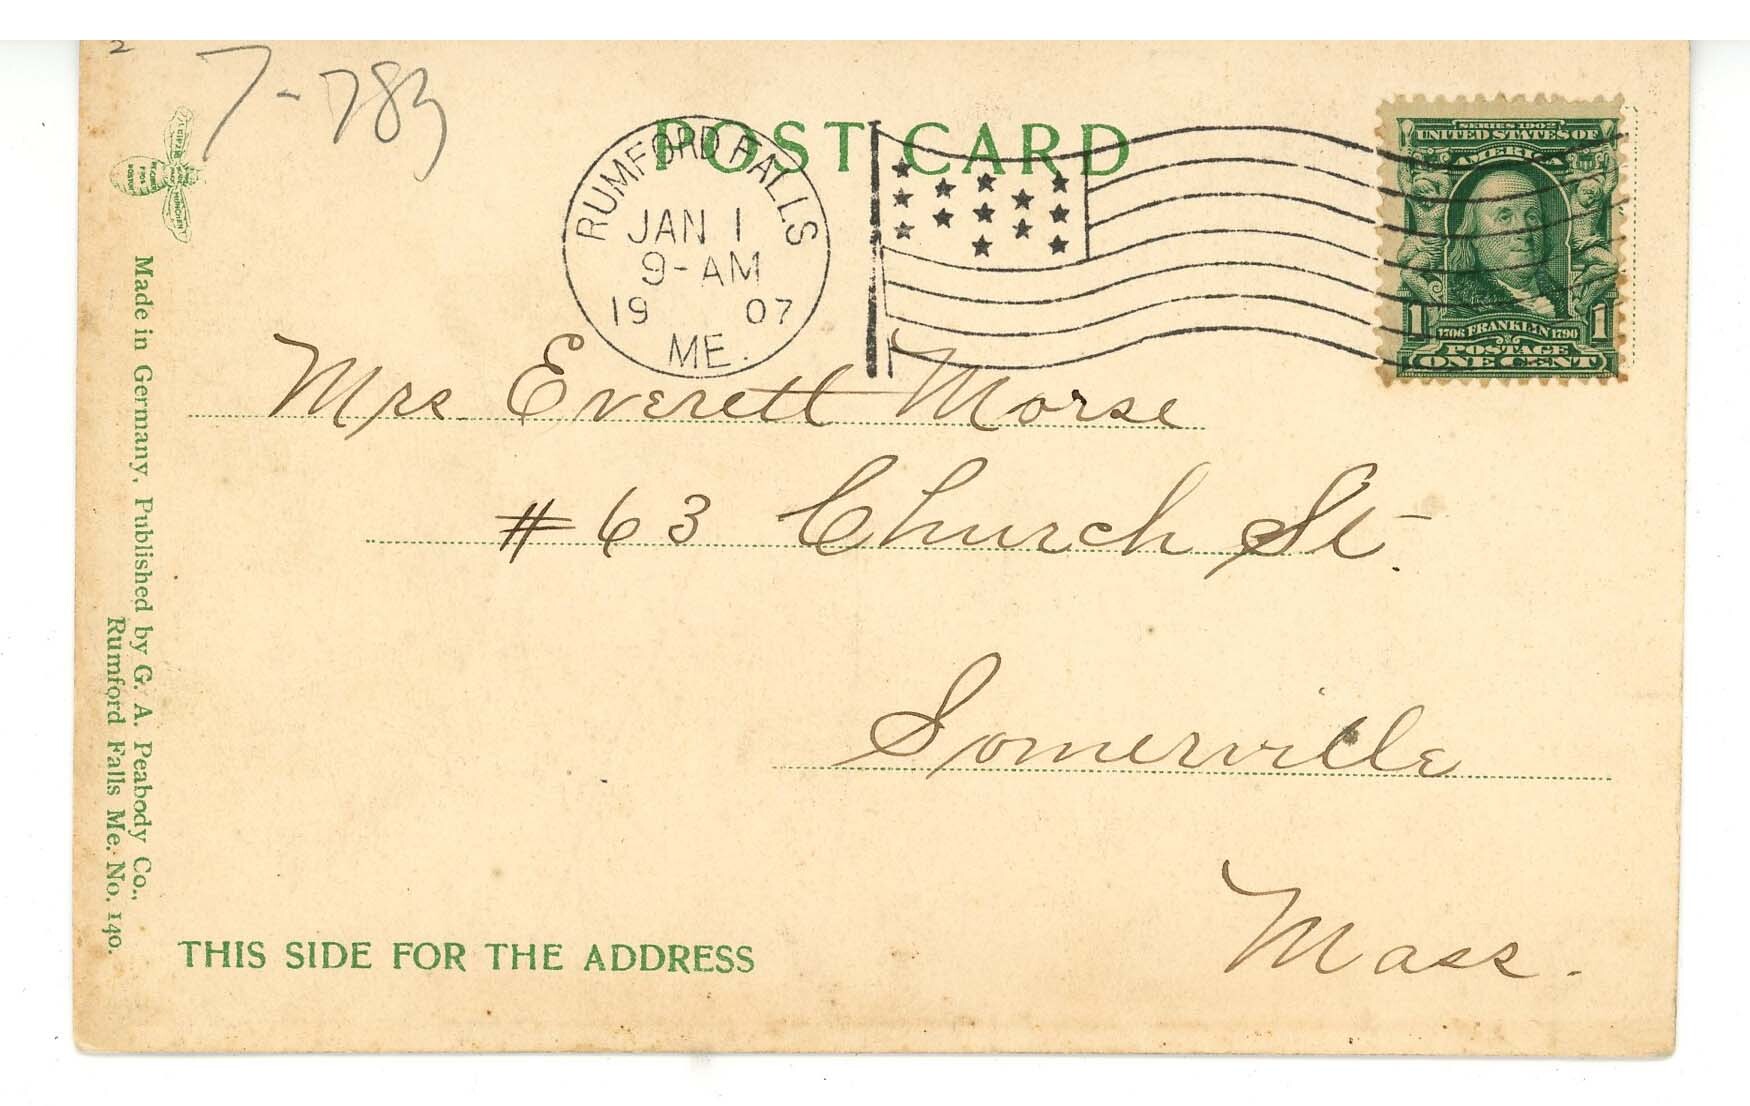 2
7-783
POST CARD
RUMFORD FALLS
JAN 1
9-AM
19 07
ME.
SERIES 1902
UNITED STATES OF
AMERICA
1 1706 FRANKLIN 1790 1
POSTAGE
ONE CENT
Mrs. Everett Morse
# 63 Church St.
Somerville
Mass.
THIS SIDE FOR THE ADDRESS
Made in Germany, Published by G. A. Peabody Co.,
Rumford Falls Me. No. 140.